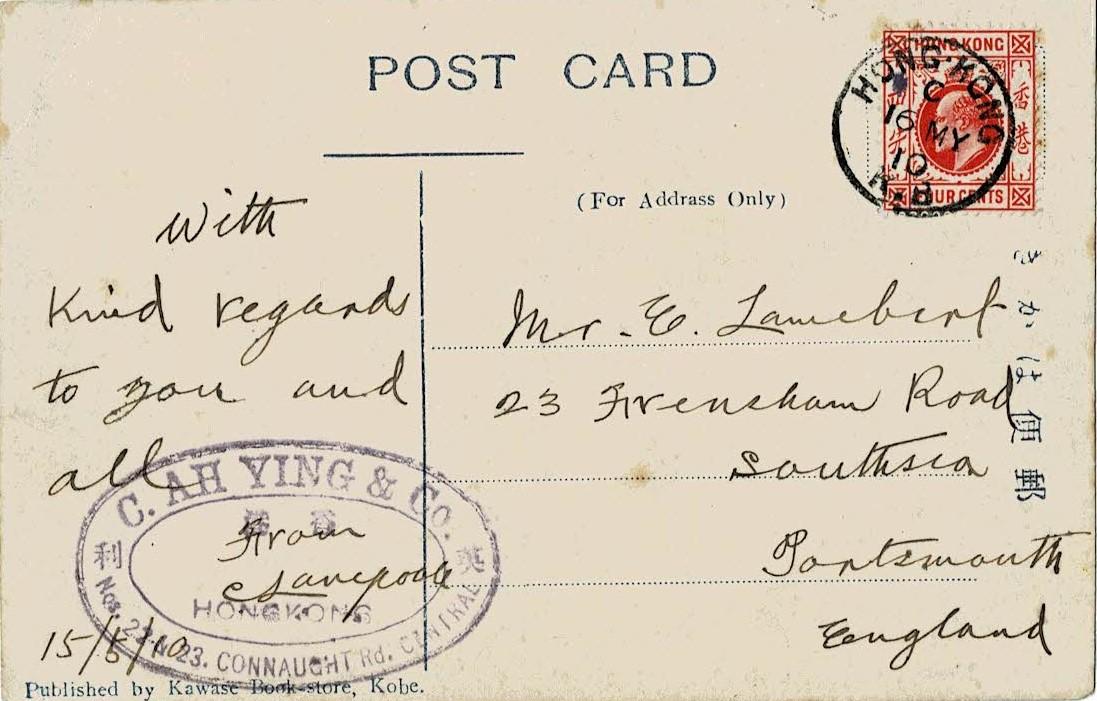 POST CARD
(For Addrass Only)
HONG KONG
香港
FOUR CENTS
HONG·KONG
C
16 MY
10
K.B
With
Kind regards
to you and
all
From
15/5/10
Mr. E. Lambert
23 Frensham Road
Southsea
Portsmouth
England
きかは便郵
C. AH YING & Co.
英
利
HONGKONG
Nos. 22 & 23. CONNAUGHT Rd. CENTRAL
Published by Kawase Book-store, Kobe.